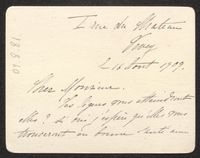 1 rue du Château
Vevey
2 16 Août 1909.
Cher Monsieur,
Ces lignes vous atteindront
elles? si oui, j'espère qu'elles vous
trouveront en bonne santé